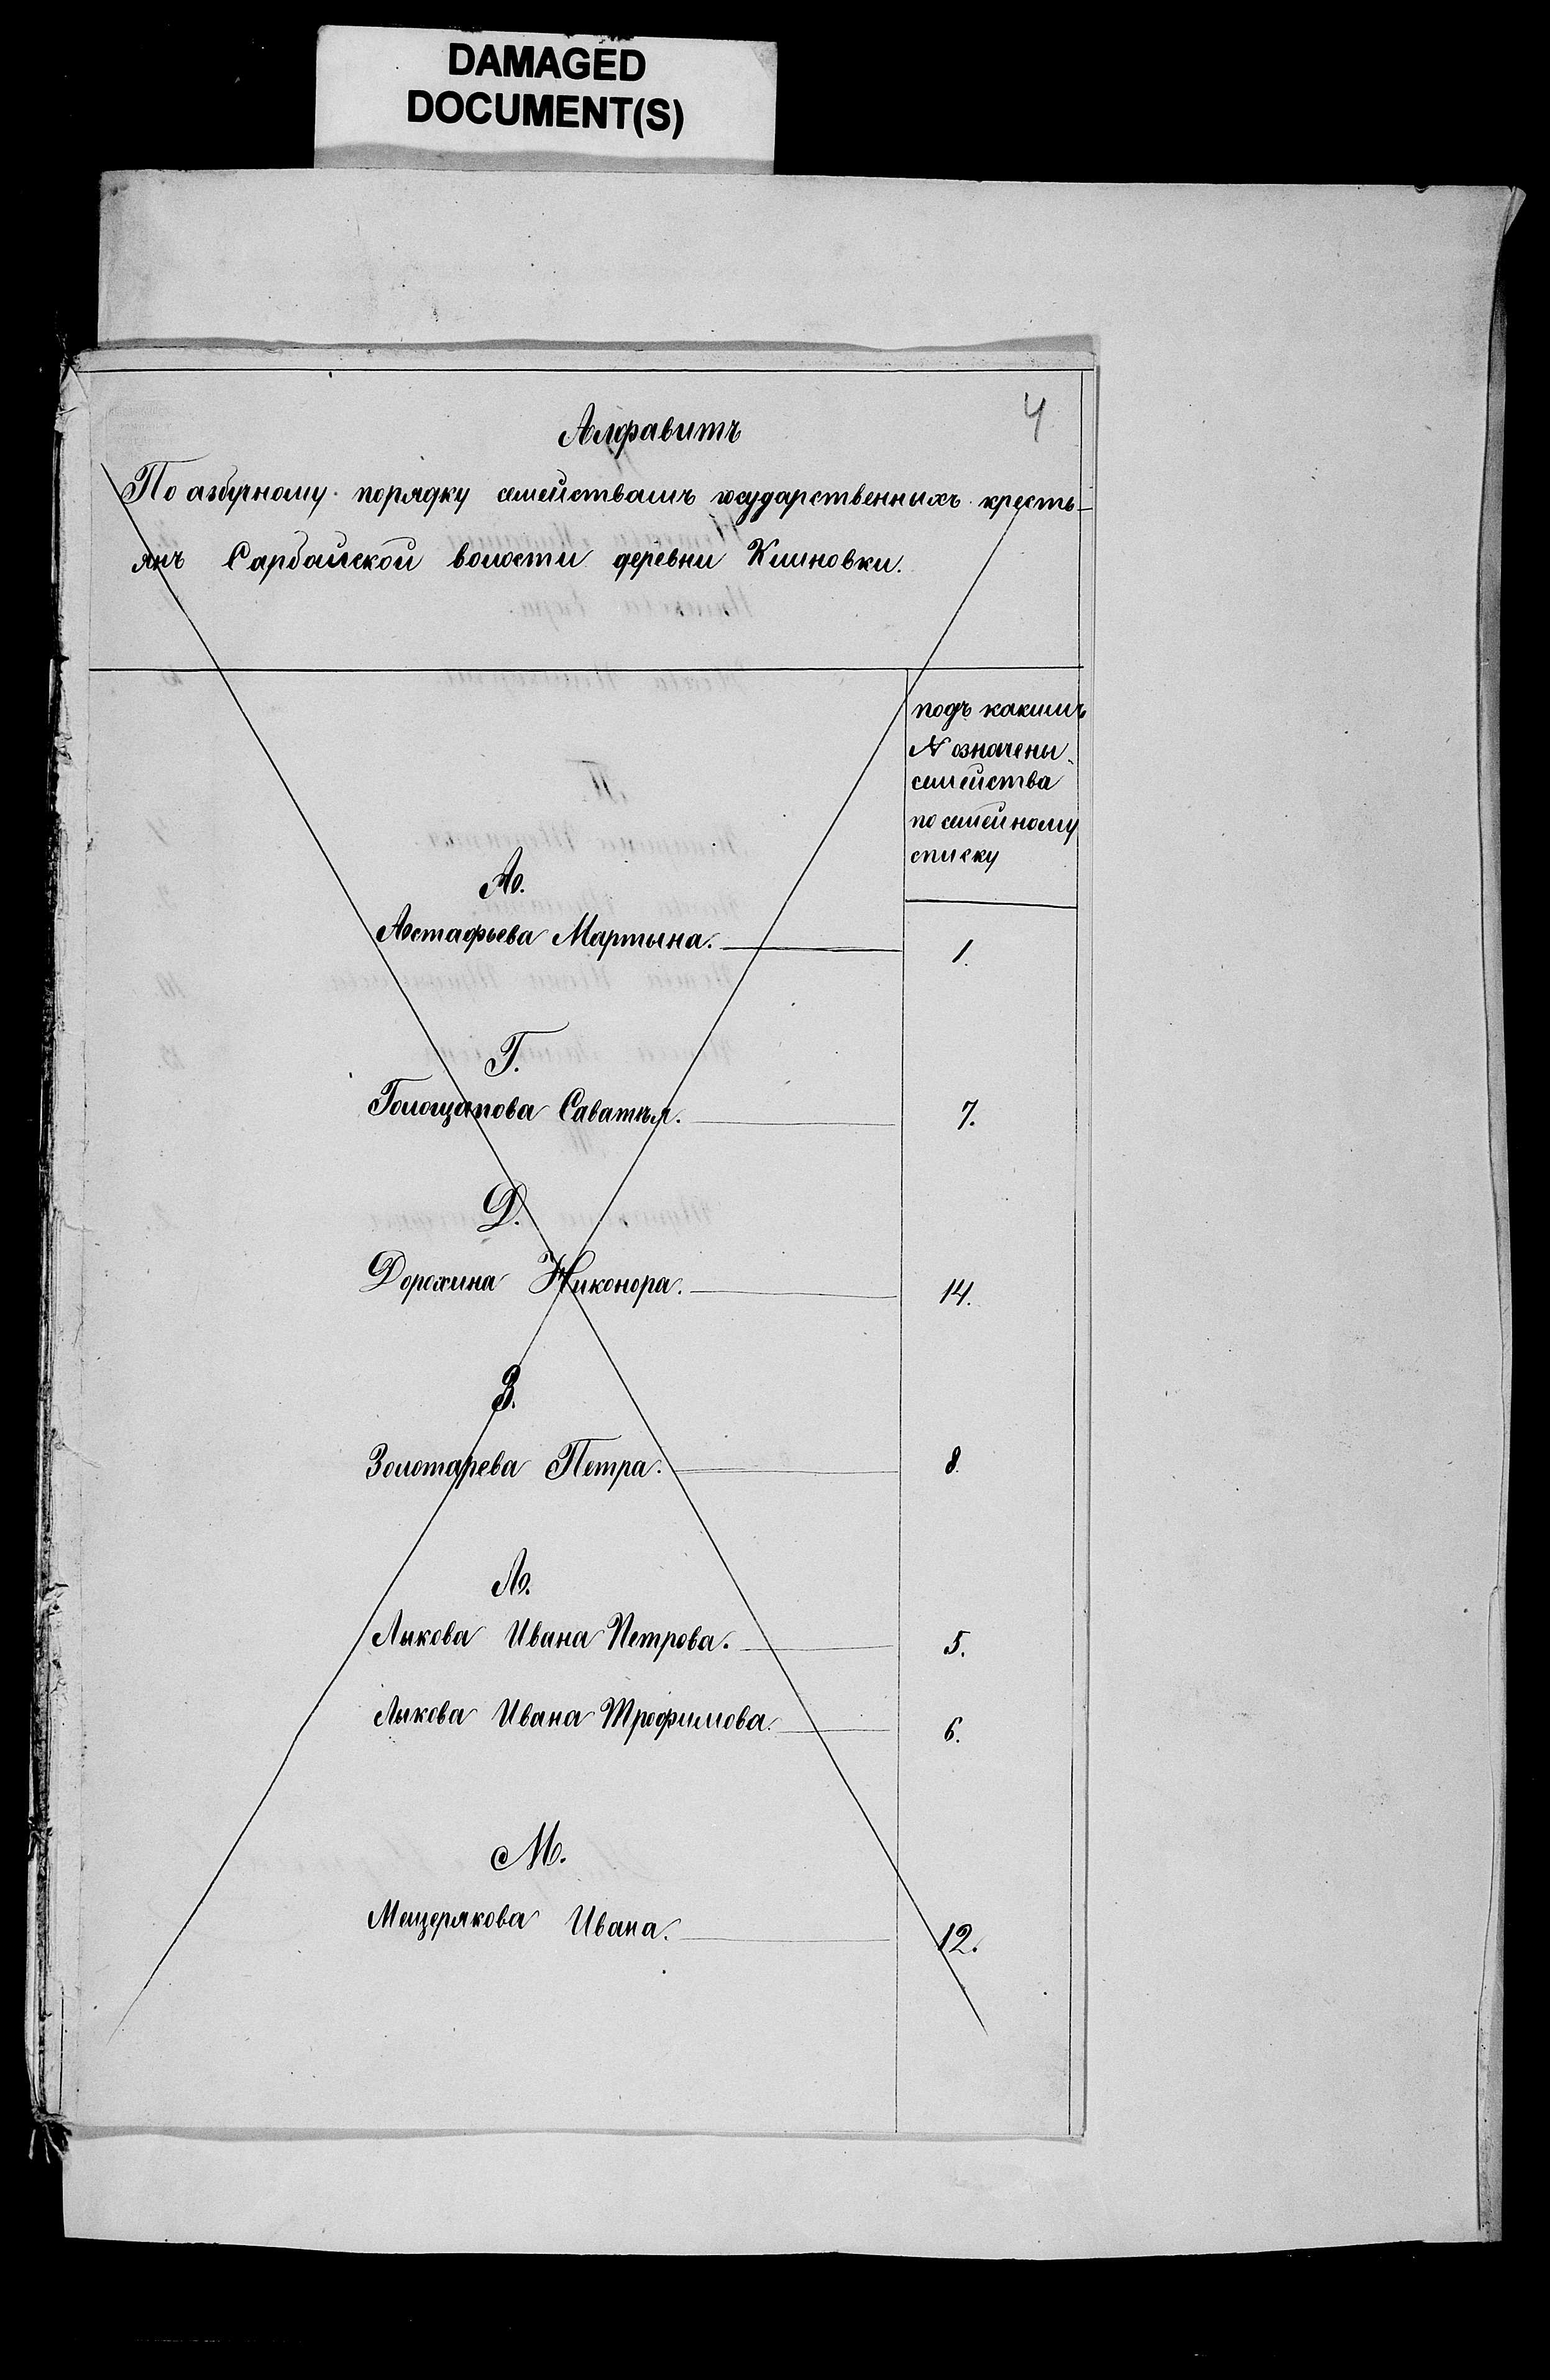 DAMAGED
DOCUMENT(S)
4
Алфавитъ
По азбучному порядку семействамъ государственныхъ кресть-
янъ Сарбайской волости деревни Климовки.
подъ какимъ
N означены
семейства
по семейному
списку
А.
Астафьева Мартына. 1.
Г.
Голощапова Саватѣя. 7.
Д.
Дорохина Никонора. 14.
З.
Золотарева Петра. 8.
Л.
Лыкова Ивана Петрова. 5.
Лыкова Ивана Трофимова. 6.
М.
Мещерякова Ивана. 12.